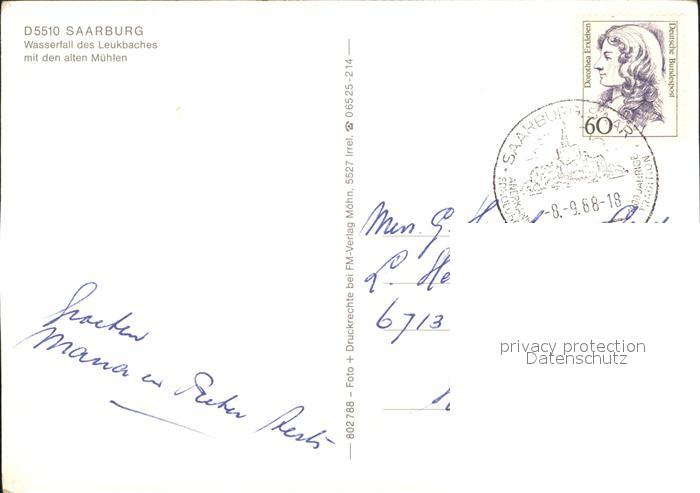 D5510 SAARBURG
Wasserfall des Leukbaches
mit den alten Mühlen
802788 – Foto + Druckrechte bei FM-Verlag Möhn, 5527 Irrel, ☎ 06525-214
Dorothea Erxleben
Deutsche Bundespost
60
SAARBURG, SAAR
-8.-9.88-18
Mevr. G.
L. He
6713
privacy protection
Datenschutz
Groeten
Maria en Pieter